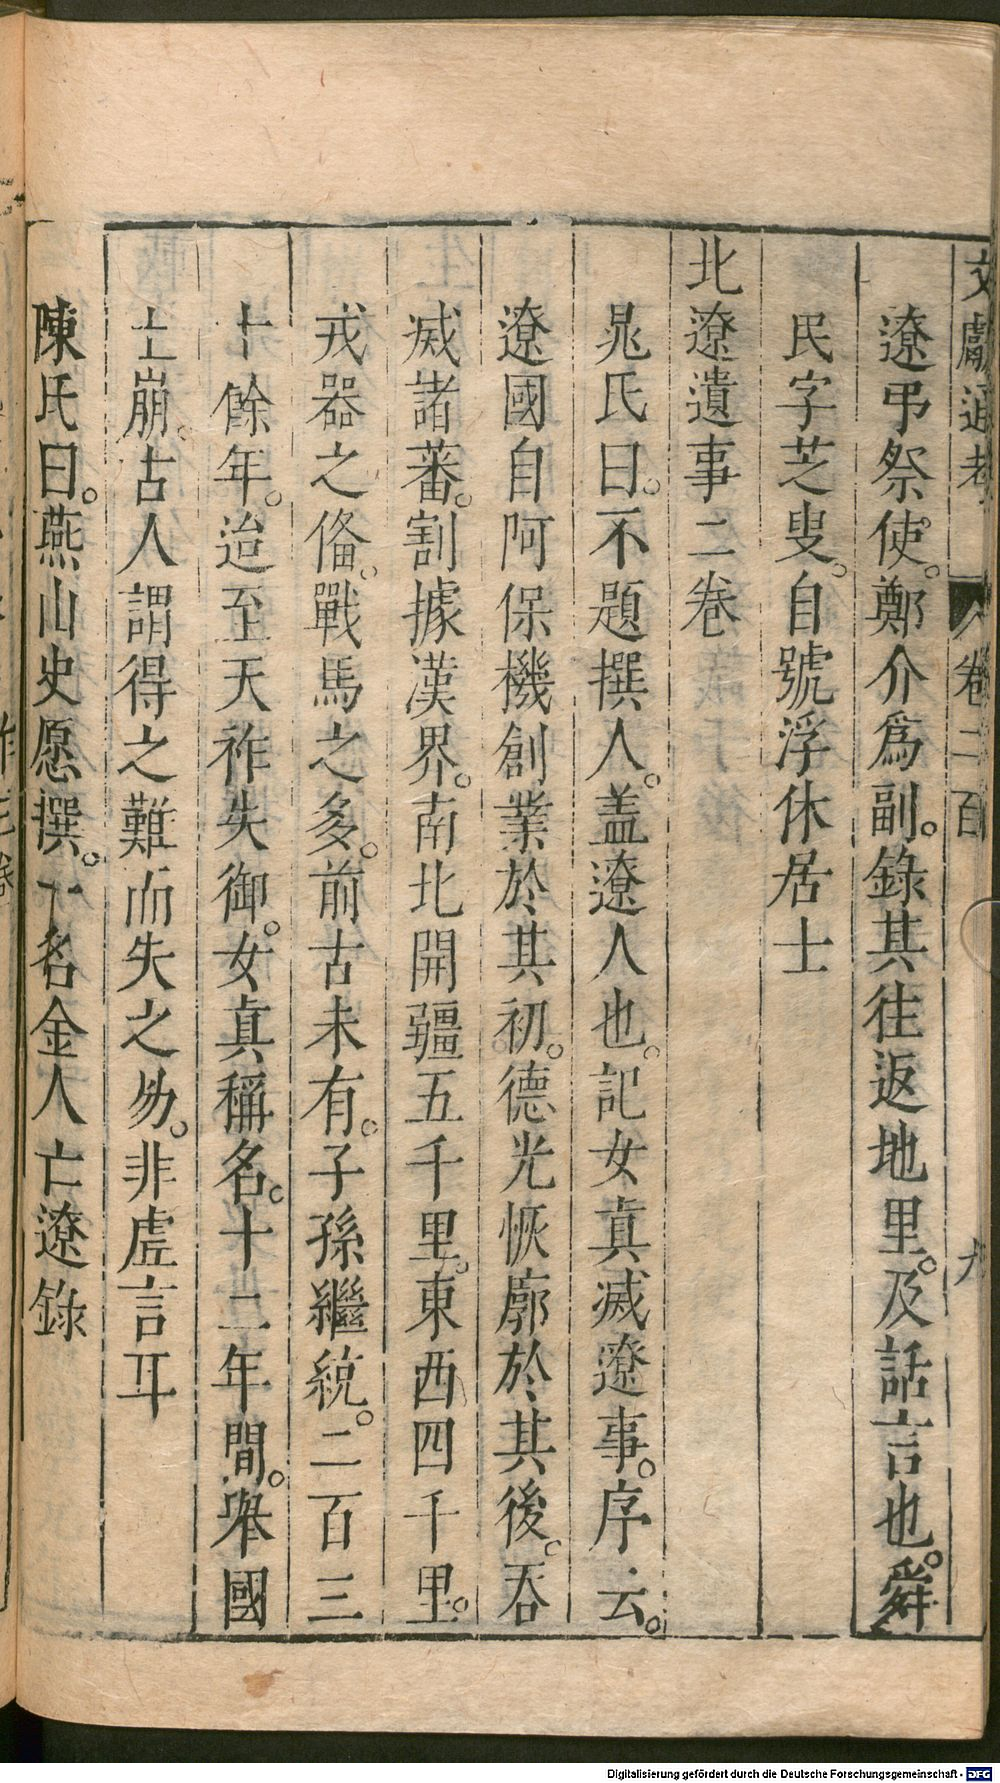 文獻通考 卷二百 九
遼弔祭使。鄭介爲副。錄其往返地里。及話言也。舜
民字芝叟。自號浮休居士
北遼遺事二卷
晁氏曰。不題撰人。盖遼人也。記女真滅遼事。序云。
遼國自阿保機創業於其初。德光恢廓於其後。吞
滅諸蕃。割據漢界。南北開疆五千里。東西四千里。
戎器之俻。戰馬之多。前古未有。子孫繼統。二百三
十餘年。迨至天祚失御。女真稱名。十二年間。舉國
土崩。古人謂得之難而失之易。非虛言耳
陳氏曰。燕山史愿撰。一名金人亡遼錄
Digitalisierung gefördert durch die Deutsche Forschungsgemeinschaft - DFG